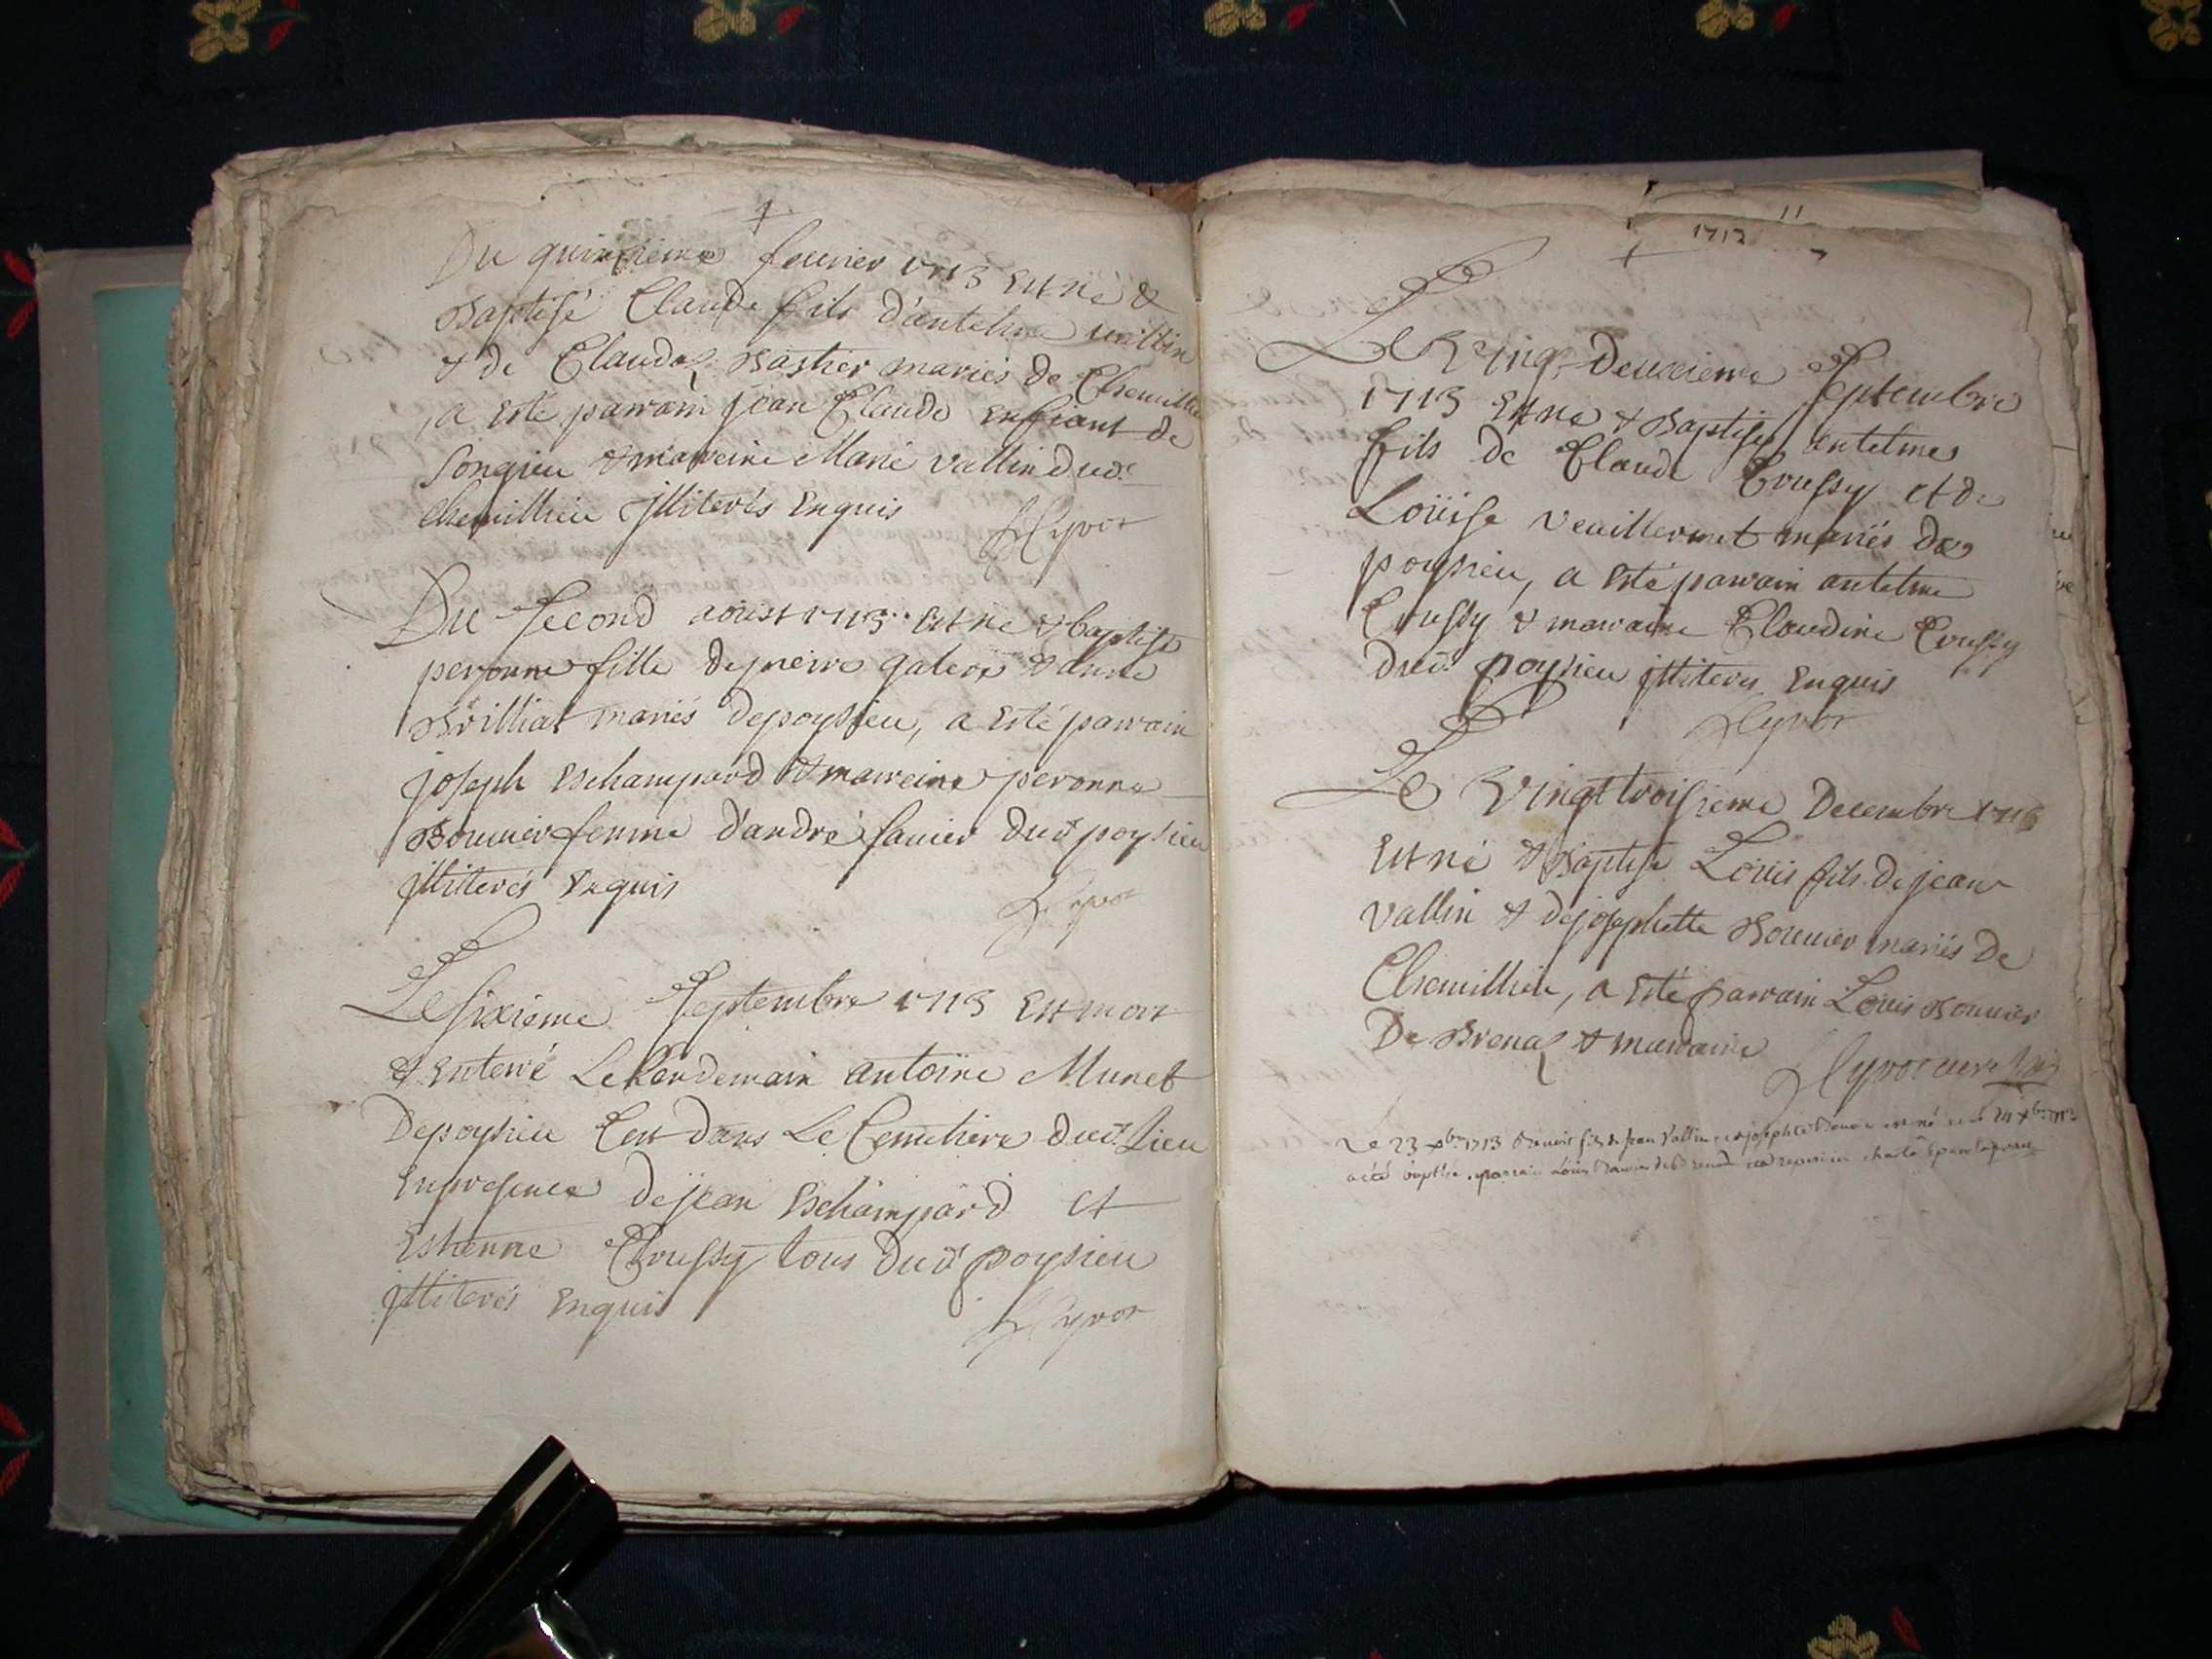 Du quinzieme feurier 1713 Est né &
Baptisé Claude fils d'antelme vallin
& de Claudaz Bastier mariés de Chemillieu
, a esté parrain jean Claude enfiant de
Songieu & marreine Marie Vallin dud.
Chemillieu illiterés Enquis
Hyvot
Du Second aoust 1713 Est né & baptisé
peronne fille de pierre galere & anne
Brilliat mariés de poysieu, a Esté parrain
joseph Eschampard & marreine peronne
Bouuier femme d'andré sauier dud poysieu
illiterés Enquis
Hyvot
Le sixieme Septembre 1713 Est mort
& Enterré Le Lendemain antoine Munet
De poysieu dans Le Cemetiere dud. Lieu
En presence de jean Eschampard et
Estienne Croussy tous dud poysieu
illiterés Enquis
Hyvot
1713 11
Le Vingt Deuxieme Septembre
1713 Est né & Baptisé antelme
fils de Claude Croussy et de
Loüise Veuillermet mariés de
poysieu, a Esté parrain antelme
Croussy & marraine Claudine Croussy
dud. poysieu illiterés Enquis
Hyvot
Le Vingt troisieme Decembre 1713
Est né & Baptisé Loüis fils de jean
Vallin & de josephette Bouuier mariés de
Chemillieu, a Esté parrain Loüis Bouuier
De Brenaz & marraine
Hyvot curé
Le 23 xbre 1713 fils de jean Vallin josephte est né 24 xbre 1713
a été baptisé parrain Loüis